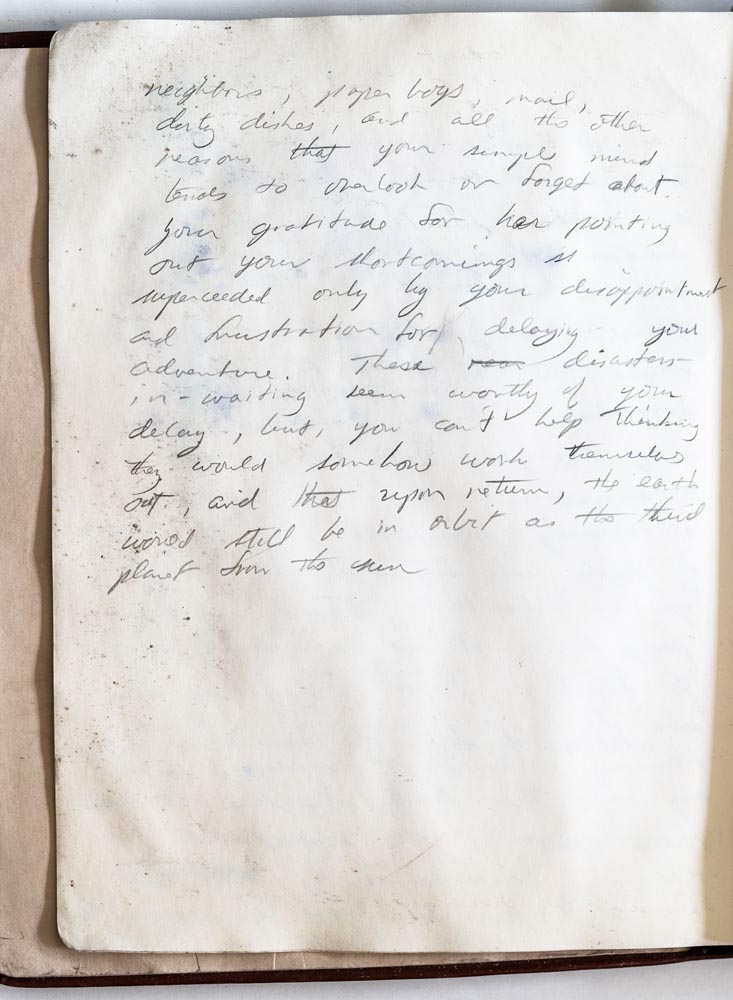 neighbors, paper boys, mail,
dirty dishes, and all the other
reasons that your simple mind
tends to overlook or forget about.
Your gratitude for her pointing
out your shortcomings is
superceeded only by your disappointment
and frustration for delaying your
adventure. These disasters-
in-waiting seem worthy of your
delay, but, you can't help thinking
they would somehow work themselves
out, and that upon return, the earth
would still be in orbit as the third
planet from the sun